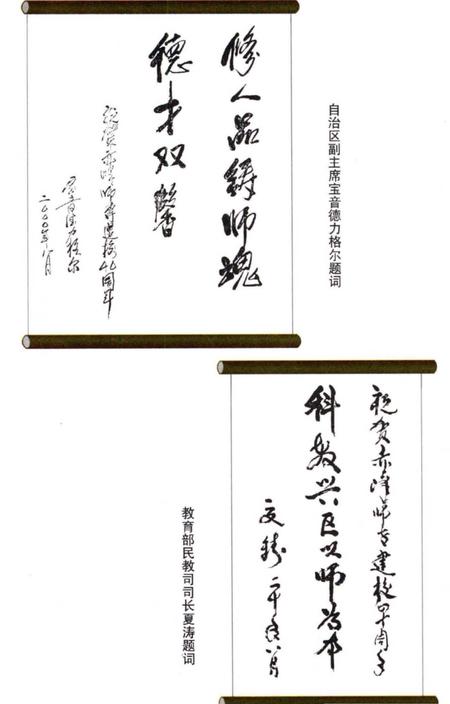 修人品铸师魂
德才双馨
祝贺赤峰师专建校40周年
宝音德力格尔
二〇〇〇年八月
自治区副主席宝音德力格尔题词
祝贺赤峰师专建校四十周年
科教兴区以师为本
夏铸 二千年八月
教育部民教司司长夏涛题词